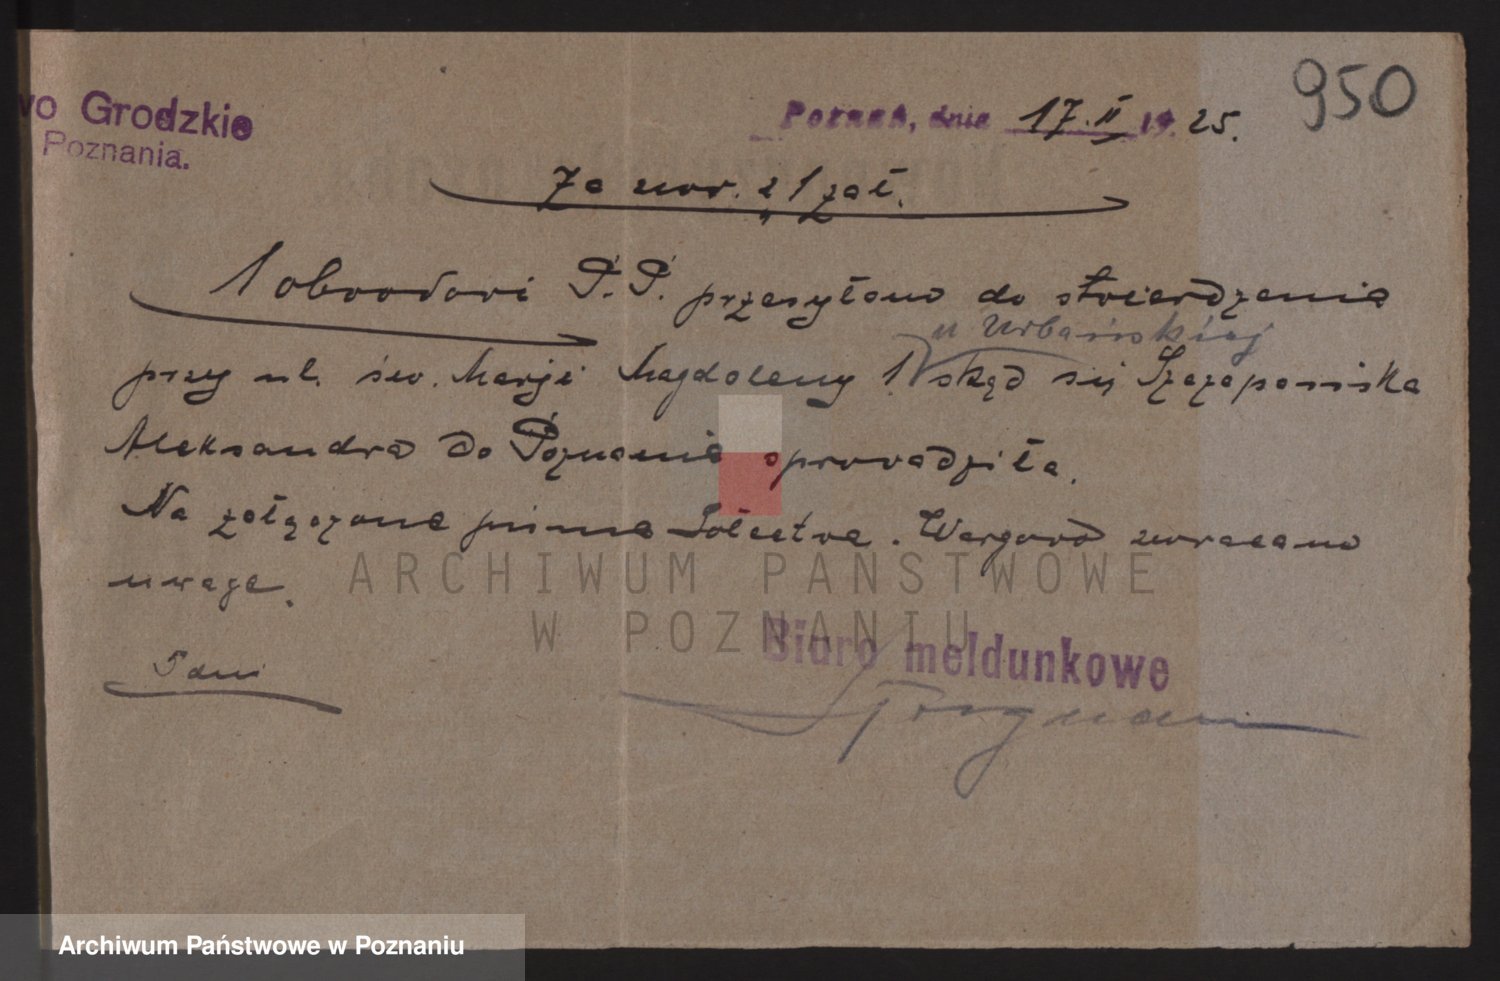 wo Grodzkie
Poznania.
Poznań, dnia 17. II 19 25.
950
Za zwr. z 1 zał.
1 obwodowi P.P. przesyłano do stwierdzenia
u Urbańskiej
przy ul. św. Marji Magdaleny 1 skąd się Szczepaniska
Aleksandra do Poznania sprowadziła.
Na załączone pismo Sołectwa zwracano
uwagę.
5 dni
Biuro meldunkowe
ARCHIWUM PAŃSTWOWE
W POZNANIU
Archiwum Państwowe w Poznaniu